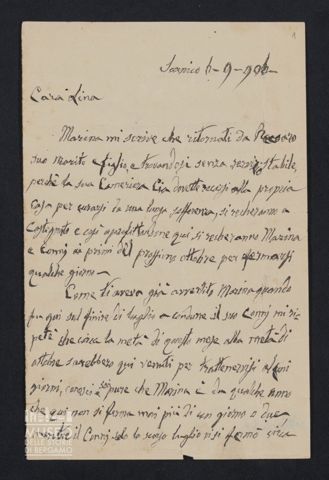 1
Sarnico 6-9-906-
Cara Lina
Marina mi scrive che ritornati da Pesaro
suo marito e figlio, e trovandosi senza servo stabile,
perché la sua Cameriera Cia dovette recarsi alla propria
Casa per curarsi da una lunga sofferenza, si recheranno a
Costignola e così approfittandone qui si recheranno Marina
e Conny ai primi del prossimo ottobre per fermarsi
qualche giorno-
Come ti aveva già avvertito Marina quando
fu qui sul finire di luglio a condurre il suo Conny mi ri-
peté che circa la metà di questo mese alla metà di
ottobre sarebbero qui venuti per trattenersi alcuni
giorni, conosci pure che Marina è da qualche anno
che qui non si ferma mai più di un giorno o due
mentre il Conny solo lo scorso luglio vi si fermò circa
MUSEO
DELLE STORIE
DI BERGAMO